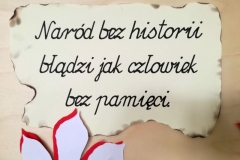 Naród bez historii
błądzi jak człowiek
bez pamięci.